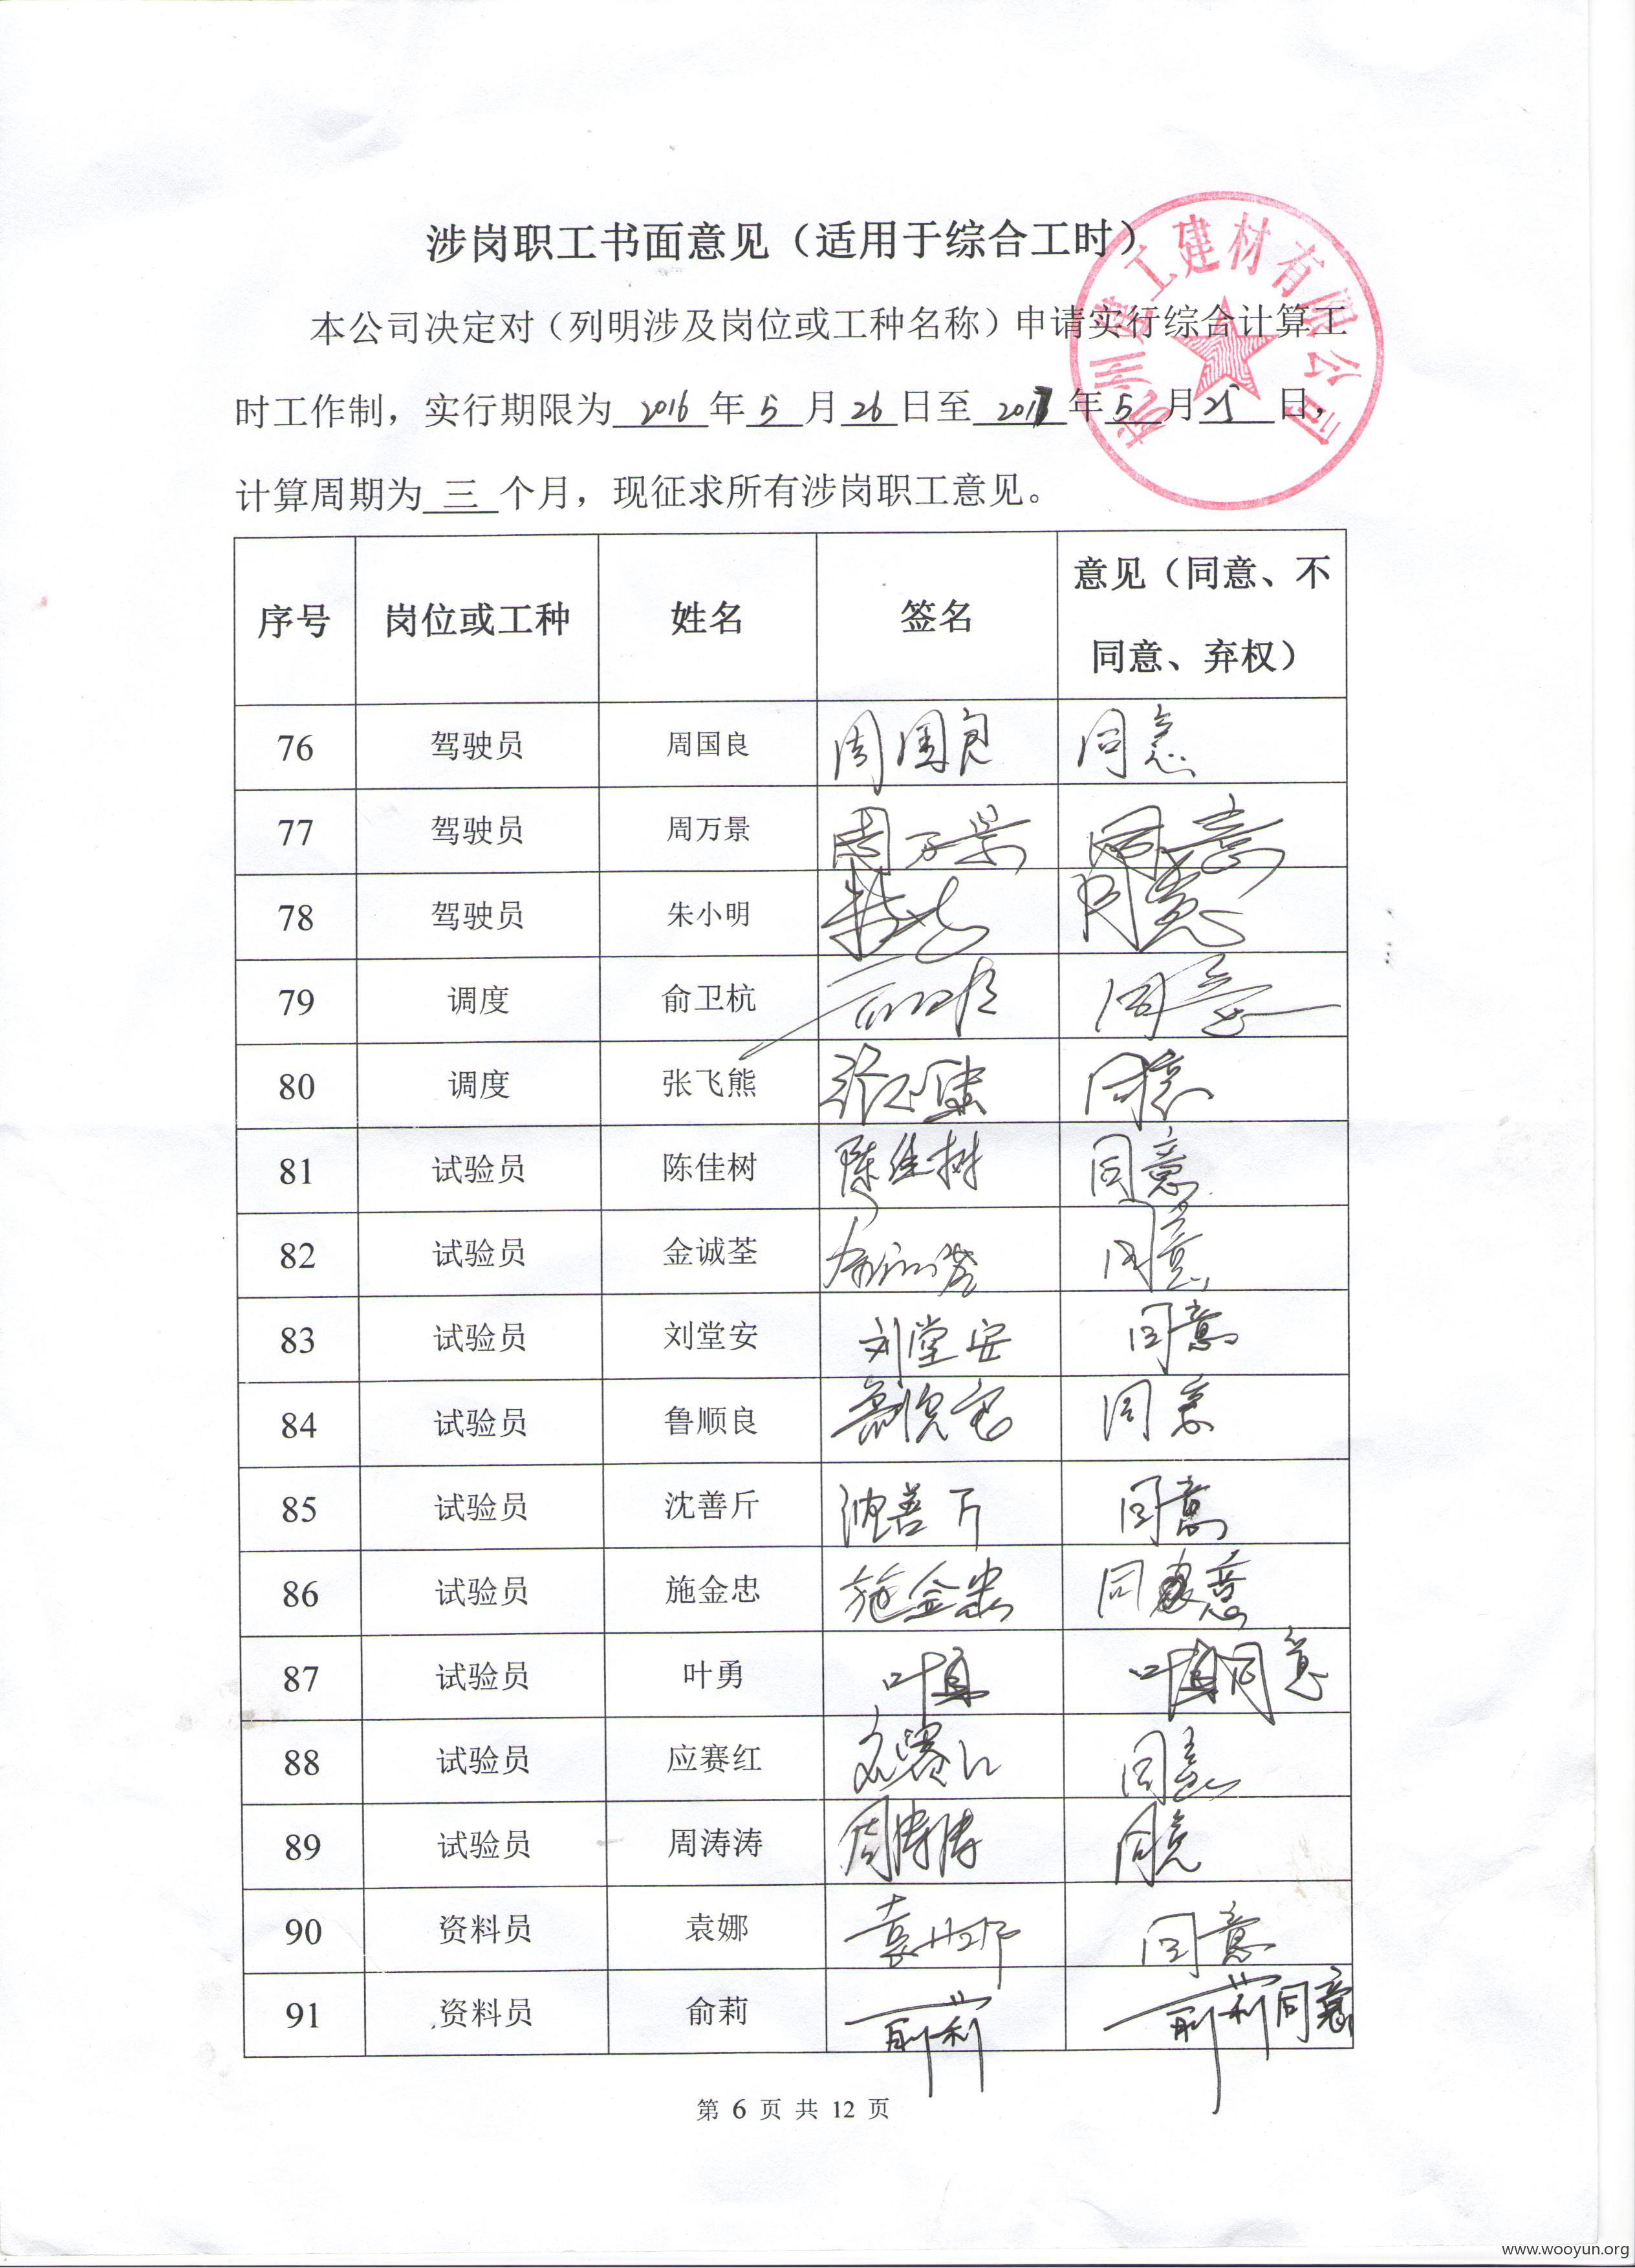 涉岗职工书面意见（适用于综合工时）
杭州建工建材有限公司
本公司决定对（列明涉及岗位或工种名称）申请实行综合计算工
时工作制，实行期限为 2016 年 5 月 26 日至 2017 年 5 月 25 日，
计算周期为 三 个月，现征求所有涉岗职工意见。
序号 岗位或工种 姓名 签名 意见（同意、不
同意、弃权）
76 驾驶员 周国良 周国良 同意
77 驾驶员 周万景 周万景 同意
78 驾驶员 朱小明 同意
79 调度 俞卫杭 同意
80 调度 张飞熊 张飞熊 同意
81 试验员 陈佳树 陈佳树 同意
82 试验员 金诚荃 同意
83 试验员 刘堂安 刘堂安 同意
84 试验员 鲁顺良 同意
85 试验员 沈善斤 沈善斤 同意
86 试验员 施金忠 施金忠 同意
87 试验员 叶勇 叶勇 叶勇同意
88 试验员 应赛红 应赛红 同意
89 试验员 周涛涛 周涛涛 同意
90 资料员 袁娜 袁娜 同意
91 资料员 俞莉 俞莉 俞莉同意
第 6 页 共 12 页
www.wooyun.org